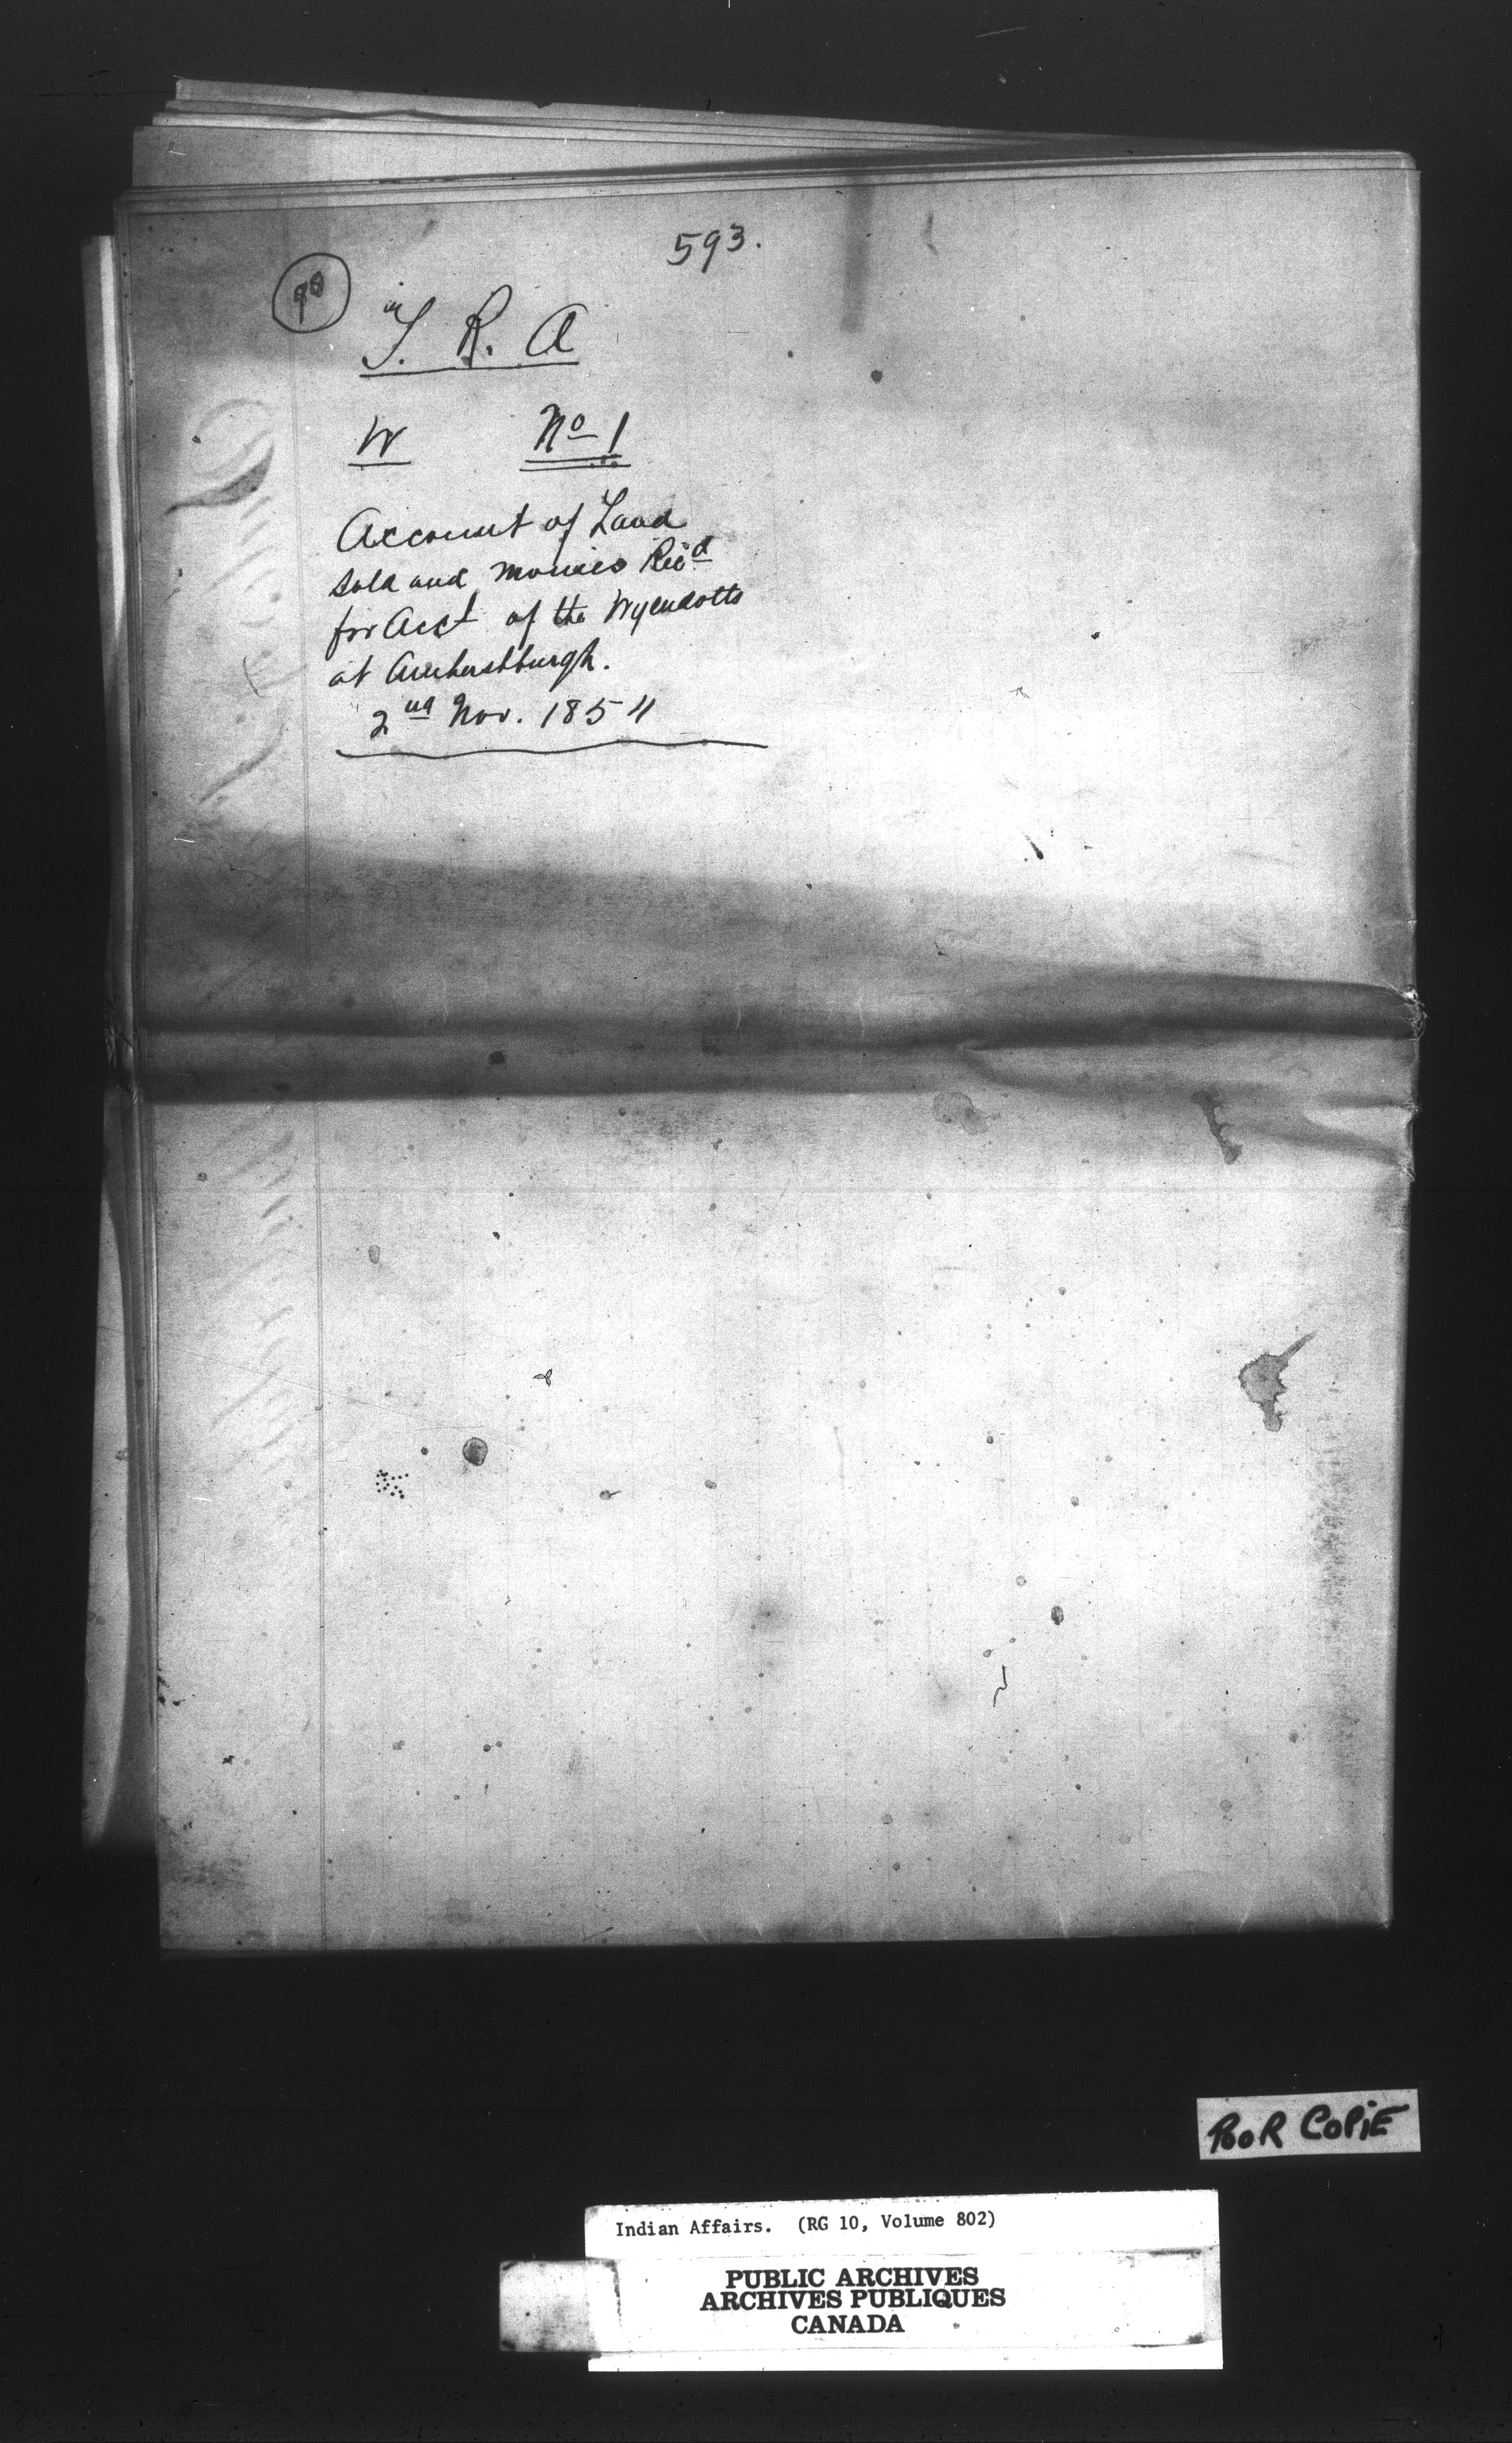 593.
98
in
T. R. A
W No 1
Account of Land
sold and monies Recd
for Acct of the Wyendotts
at Amherstburgh.
2nd Nov. 1854
POOR COPIE
Indian Affairs. (RG 10, Volume 802)
PUBLIC ARCHIVES
ARCHIVES PUBLIQUES
CANADA